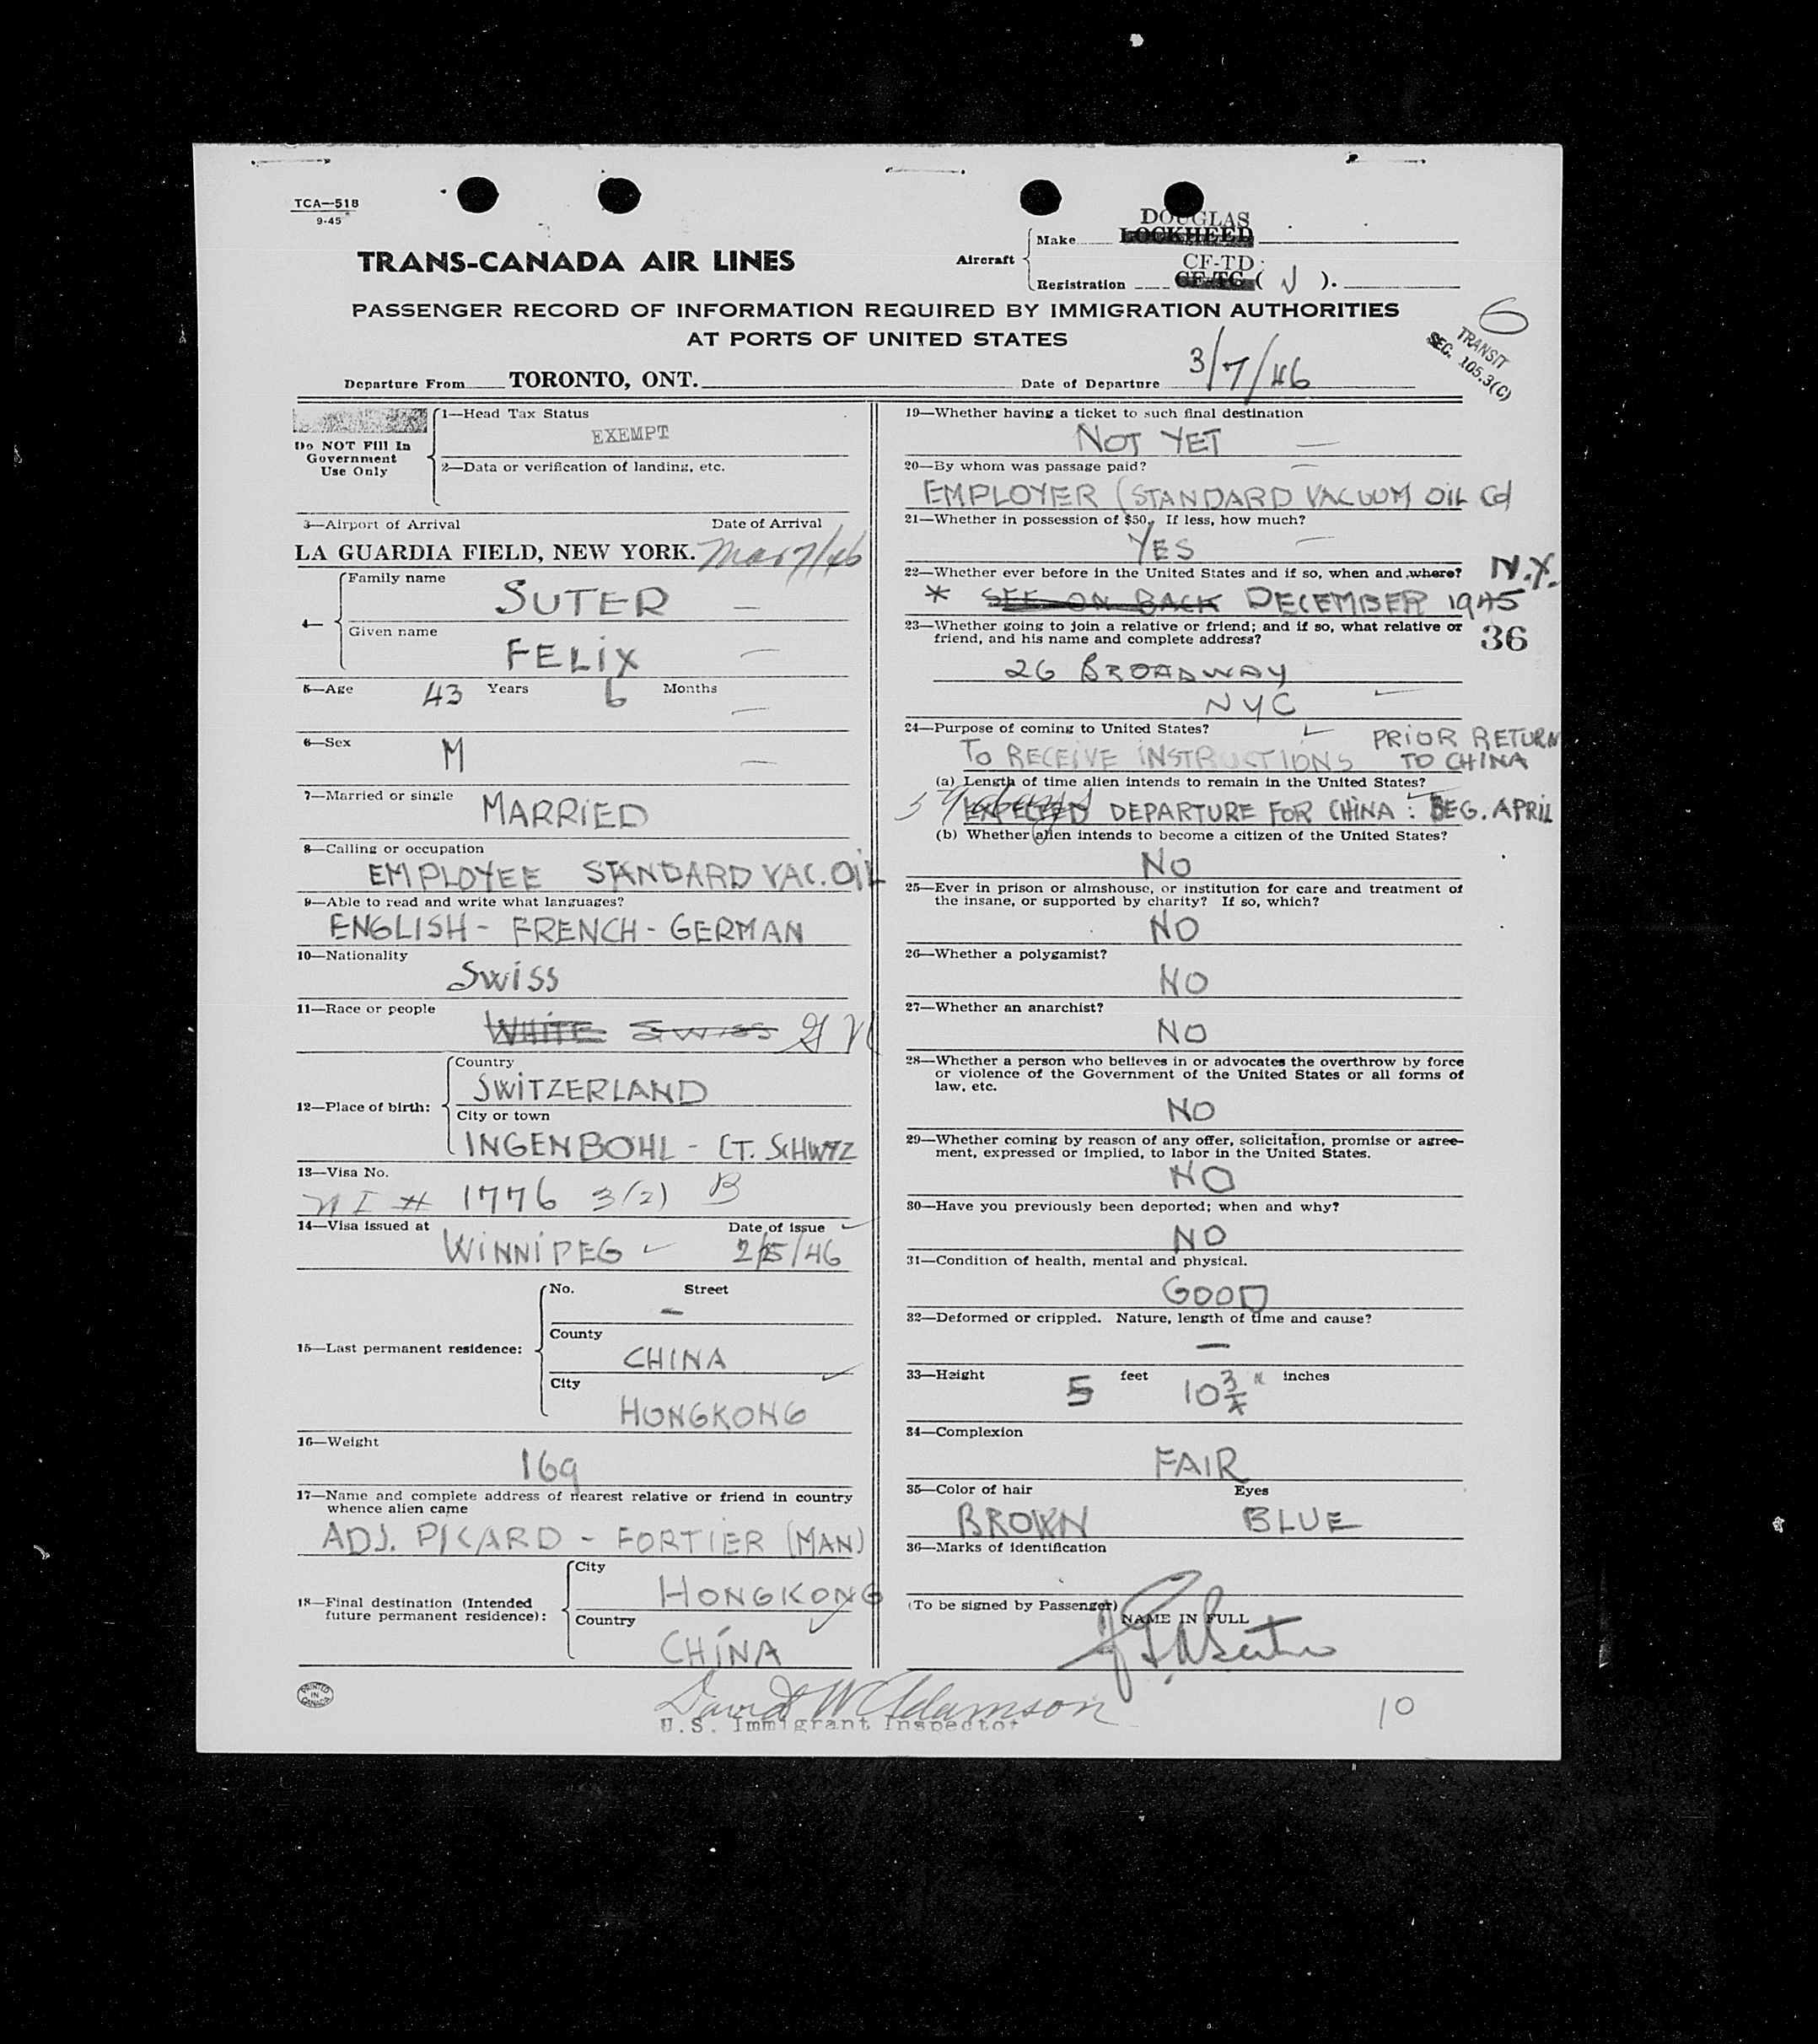 TCA—518
9-45
DOUGLAS
Make LOCKHEED
TRANS-CANADA AIR LINES
Aircraft
CF-TD
Registration CF-TG ( J ).
PASSENGER RECORD OF INFORMATION REQUIRED BY IMMIGRATION AUTHORITIES
AT PORTS OF UNITED STATES
6
TRANSIT
SEC. 105.3(C)
Departure From TORONTO, ONT.
Date of Departure 3/7/46
Do NOT Fill In
Government
Use Only
1—Head Tax Status
EXEMPT
2—Data or verification of landing, etc.
3—Airport of Arrival Date of Arrival
LA GUARDIA FIELD, NEW YORK. Mar 7/46
4—
Family name
SUTER
Given name
FELIX
5—Age 43 Years 6 Months
6—Sex
M
7—Married or single
MARRIED
8—Calling or occupation
EMPLOYEE STANDARD VAC. OIL
9—Able to read and write what languages?
ENGLISH - FRENCH - GERMAN
10—Nationality
SWISS
11—Race or people
WHITE SWISS
12—Place of birth:
Country
SWITZERLAND
City or town
INGENBOHL - CT. SCHWYZ
13—Visa No.
NI # 1776 3(2) B
14—Visa issued at Date of issue
WINNIPEG 2/15/46
15—Last permanent residence:
No. Street
—
County
CHINA
City
HONGKONG
16—Weight
169
17—Name and complete address of nearest relative or friend in country
whence alien came
ADJ. PICARD - FORTIER (MAN)
18—Final destination (Intended
future permanent residence):
City
HONGKONG
Country
CHINA
19—Whether having a ticket to such final destination
NOT YET
20—By whom was passage paid?
EMPLOYER (STANDARD VACUUM OIL Co)
21—Whether in possession of $50. If less, how much?
YES
22—Whether ever before in the United States and if so, when and where? N.Y.
* SEE ON BACK DECEMBER 1945
23—Whether going to join a relative or friend; and if so, what relative or
friend, and his name and complete address?
36
26 BROADWAY
NYC
24—Purpose of coming to United States?
TO RECEIVE INSTRUCTIONS PRIOR RETURN
TO CHINA
(a) Length of time alien intends to remain in the United States?
days EXPECTED DEPARTURE FOR CHINA : BEG. APRIL
(b) Whether alien intends to become a citizen of the United States?
NO
25—Ever in prison or almshouse, or institution for care and treatment of
the insane, or supported by charity? If so, which?
NO
26—Whether a polygamist?
NO
27—Whether an anarchist?
NO
28—Whether a person who believes in or advocates the overthrow by force
or violence of the Government of the United States or all forms of
law, etc.
NO
29—Whether coming by reason of any offer, solicitation, promise or agree-
ment, expressed or implied, to labor in the United States.
NO
30—Have you previously been deported; when and why?
NO
31—Condition of health, mental and physical.
GOOD
32—Deformed or crippled. Nature, length of time and cause?
—
33—Height 5 feet 10 3/4" inches
34—Complexion
FAIR
35—Color of hair Eyes
BROWN BLUE
36—Marks of identification
(To be signed by Passenger)
NAME IN FULL
PRINTED
IN
CANADA
David W Adamson
U.S. Immigrant Inspector
10